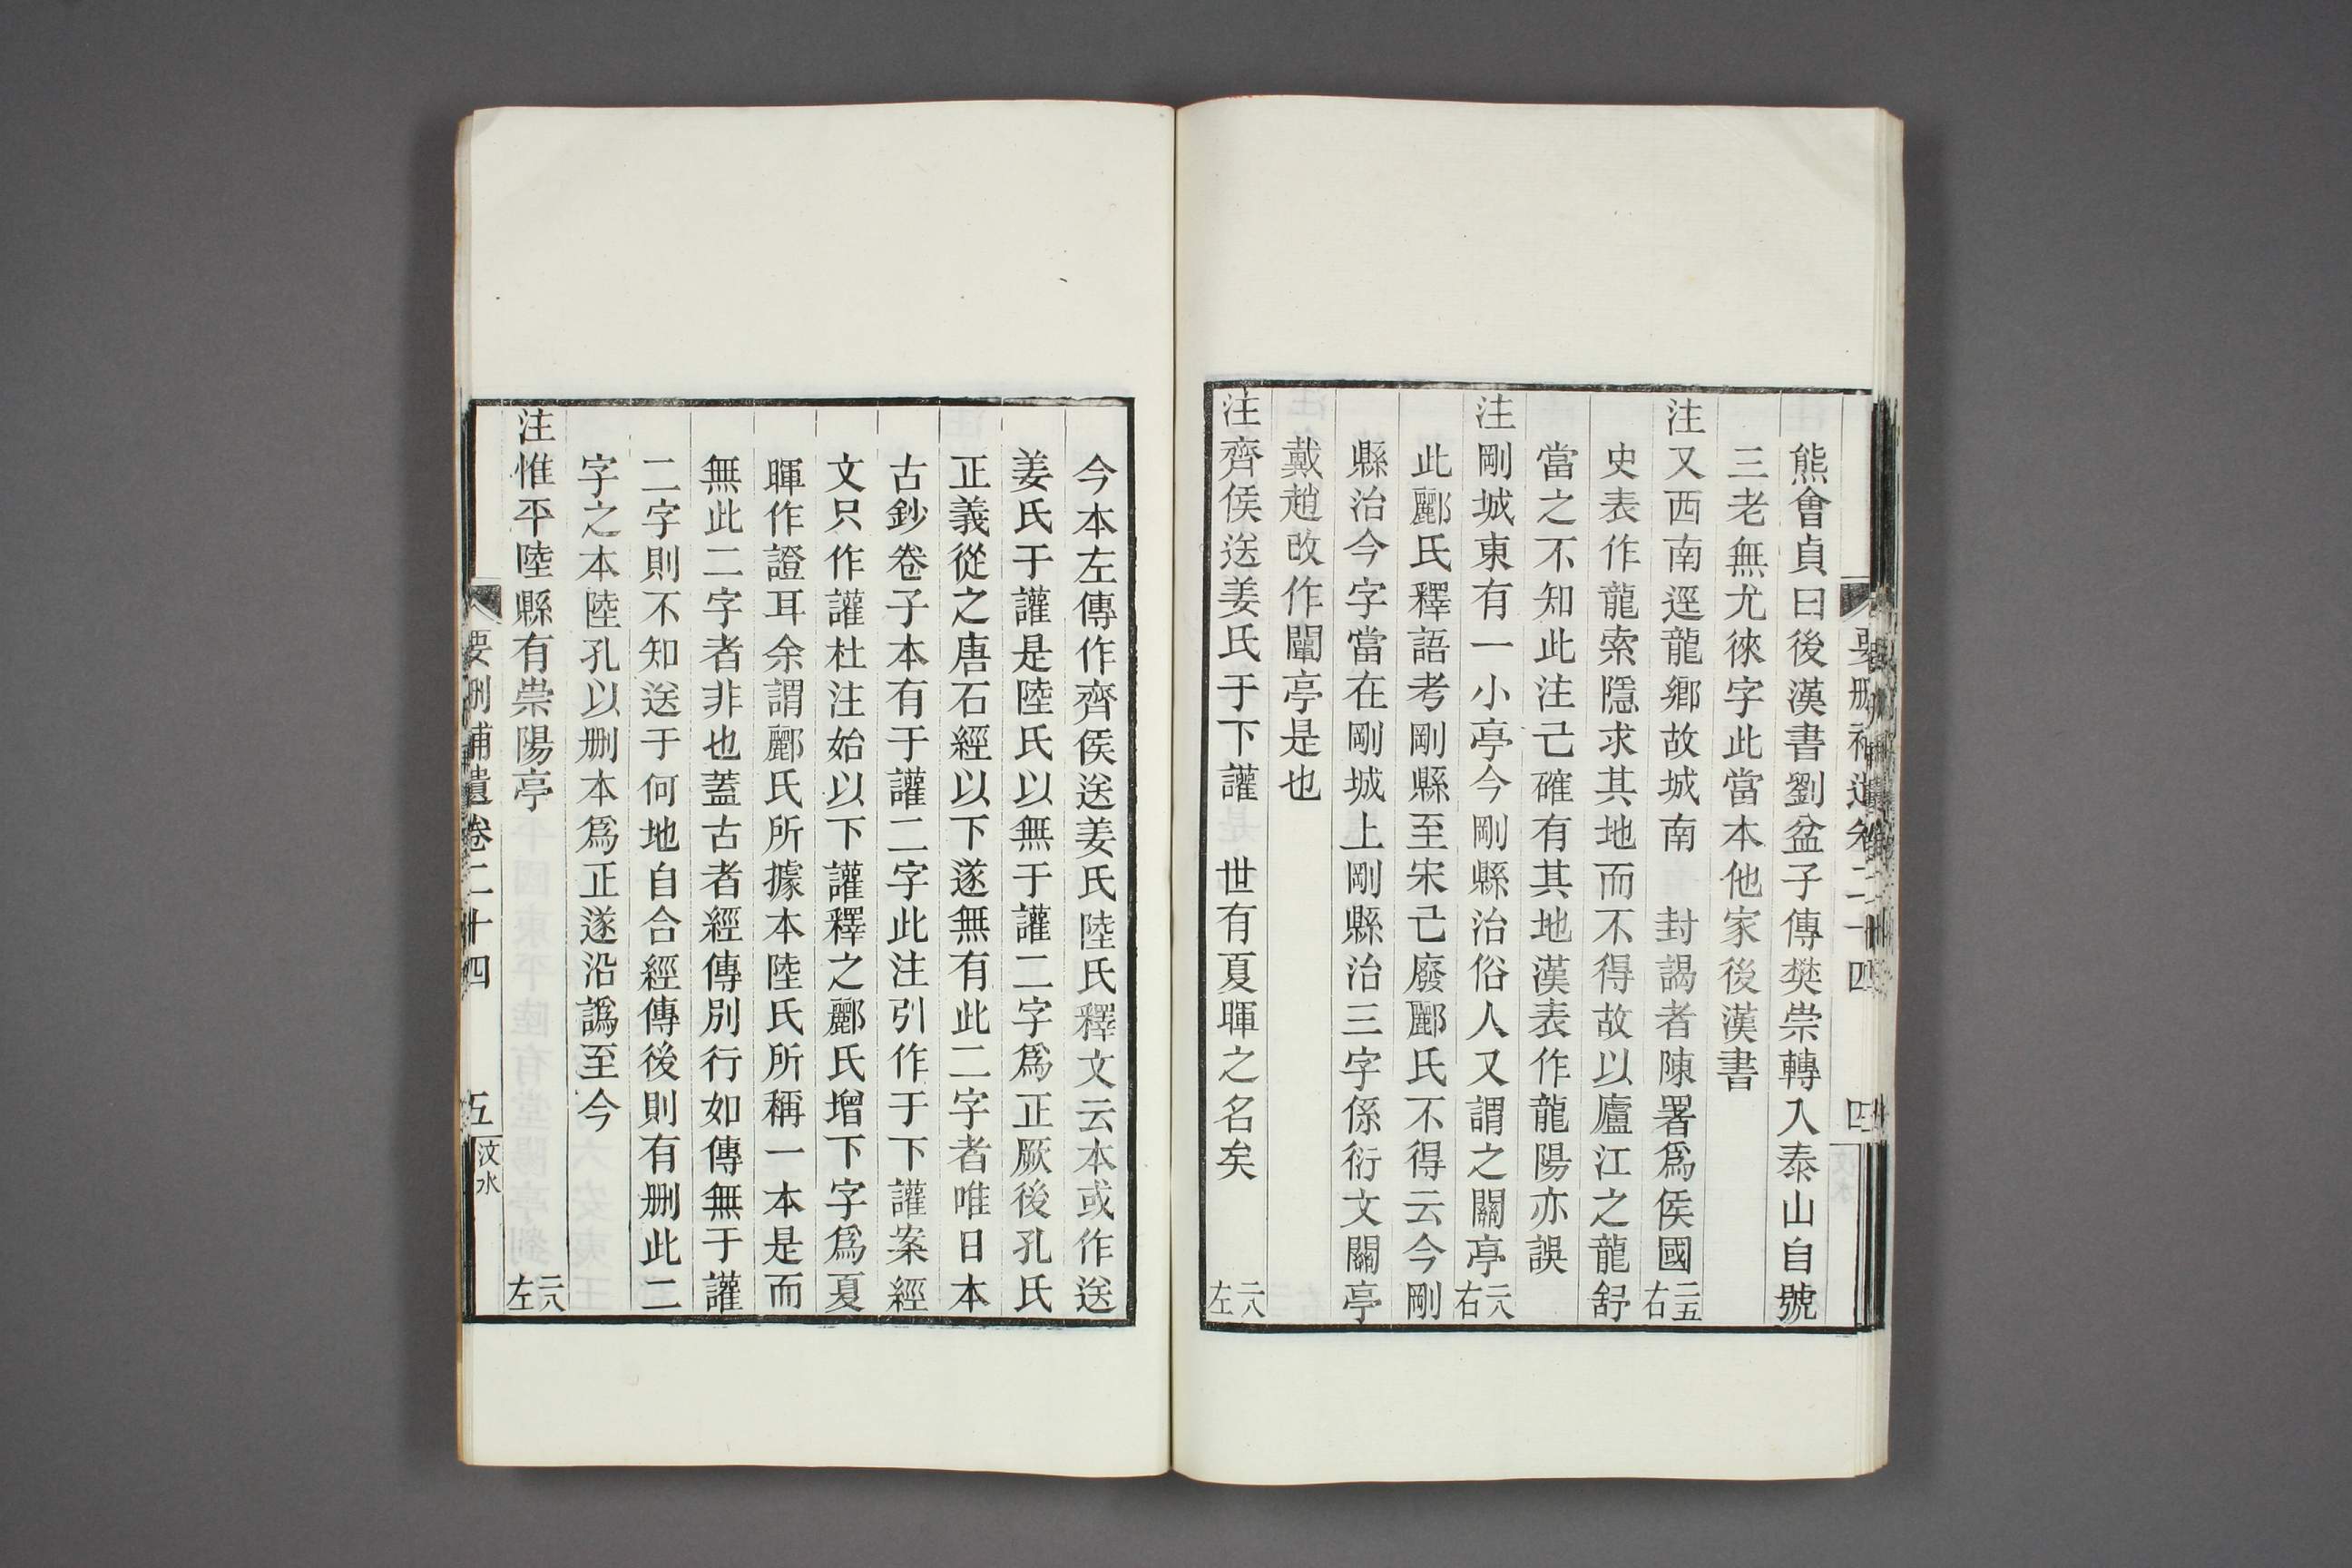 熊會貞曰後漢書劉盆子傳樊崇轉入泰山自號
三老無尤徠字此當本他家後漢書
注又西南逕龍鄉故城南 封謁者陳署爲侯國 二五右
史表作龍索隱求其地而不得故以廬江之龍舒
當之不知此注己確有其地漢表作龍陽亦誤
注剛城東有一小亭今剛縣治俗人又謂之關亭 二八右
此酈氏釋語考剛縣至宋己廢酈氏不得云今剛
縣治今字當在剛城上剛縣治三字係衍文關亭
戴趙改作闡亭是也
注齊侯送姜氏于下讙 世有夏暉之名矣 二八左
今本左傳作齊侯送姜氏陸氏釋文云本或作送
姜氏于讙是陸氏以無于讙二字爲正厥後孔氏
正義從之唐石經以下遂無有此二字者唯日本
古鈔卷子本有于讙二字此注引作于下讙案經
文只作讙杜注始以下讙釋之酈氏增下字爲夏
暉作證耳余謂酈氏所據本陸氏所稱一本是而
無此二字者非也蓋古者經傳別行如傳無于讙
二字則不知送于何地自合經傳後則有删此二
字之本陸孔以删本爲正遂沿譌至今
注惟平陸縣有崇陽亭 二八左
要删補遺卷二十四 五 汶水